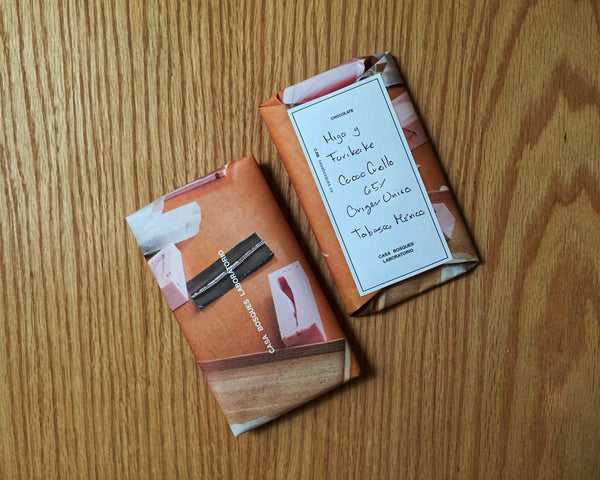 CASA BOSQUES LABORATORIO
CHOCOLATE
Migo y
Furikake
Cacao Criollo
65%
Origen Único
Tabasco México
CASA BOSQUES
LABORATORIO